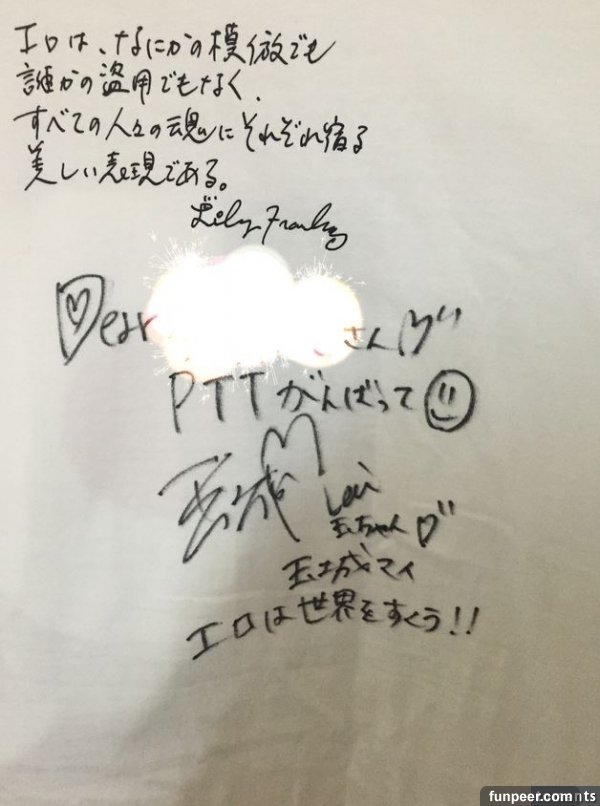 エロは、なにかの模倣でも
誰かの盗用でもなく、
すべての人々の魂にそれぞれ宿る
美しい表現である。
Lily Franky
Dear さん
PTTがんばって
玉城
玉ちゃん
玉城マイ
エロは世界をすくう!!
funpeer.com